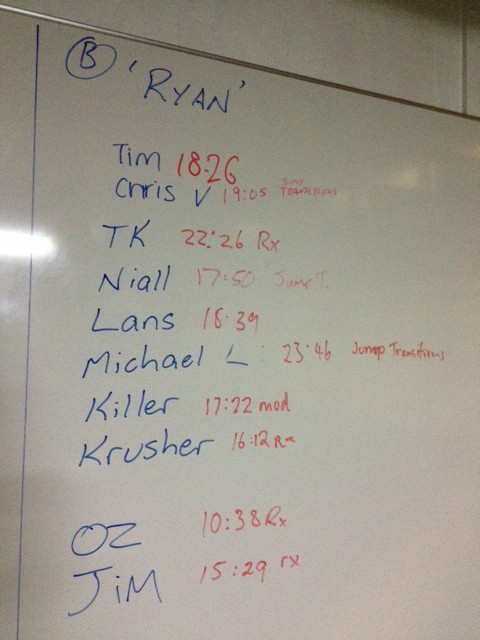 B 'RYAN'
Tim 18:26
Chris V 19:05 JUMP TRANSITIONS
TK 22:26 Rx
Niall 17:50 Jump T.
Lans 18:39
Michael L 23:46 Jump Transitions
Killer 17:22 mod
Krusher 16:12 Rx
OZ 10:38 Rx
JiM 15:29 rx